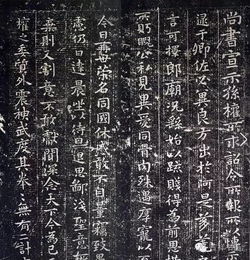 尚書宣示孫權所求詔令所報所以博
逮于卿佐必冀良方出於阿是芻
言可擇郎廟況繇始以疏賤得為前恩橫
所眄睨公私見異愛同骨肉殊遇厚寵以至
今日再世榮名同國休慼敢不自量竊致愚
慮仍日達晨坐以待旦退思鄙淺聖意所
棄則又割意不敢獻聞深念天下今為已平
權之委質外震神武度其拳拳無有二計